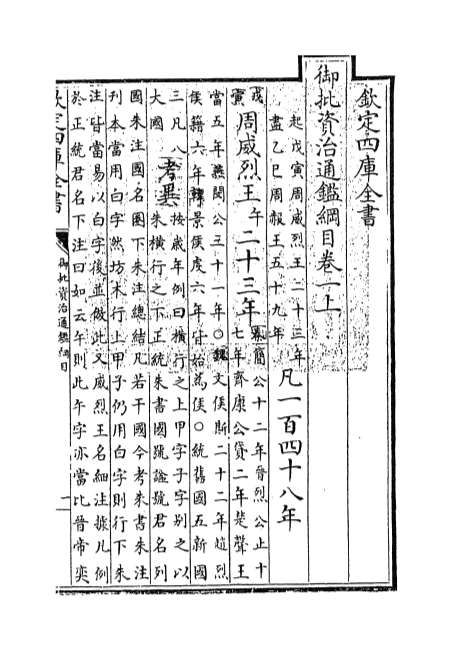 欽定四庫全書
御批資治通鑑綱目卷一上
起戊寅周威烈王二十三年
盡乙巳周赧王五十九年
凡一百四十八年
戊寅
周威烈王午二十三年
簡公十二年晉烈公止十
七年齊康公貸二年楚聲王
當五年燕閔公三十一年〇魏文侯斯二十二年趙烈
侯籍六年韓景侯虔六年皆始為侯〇統舊國五新國
三凡八
大國
考異
按歲年例曰横行之上甲字子字别之以
朱横行之下正統朱書國號諡號君名列
國朱注國名圏下朱注總結凡若干國今考朱書朱注
刋本當用白字然坊本行上甲子仍用白字則行下朱
注皆當易以白字後並倣此又威烈王名細注據凡例
於正統君名下注曰如云午則此午字亦當比晉帝奕
欽定四庫全書
御批資治通鑑綱目
一